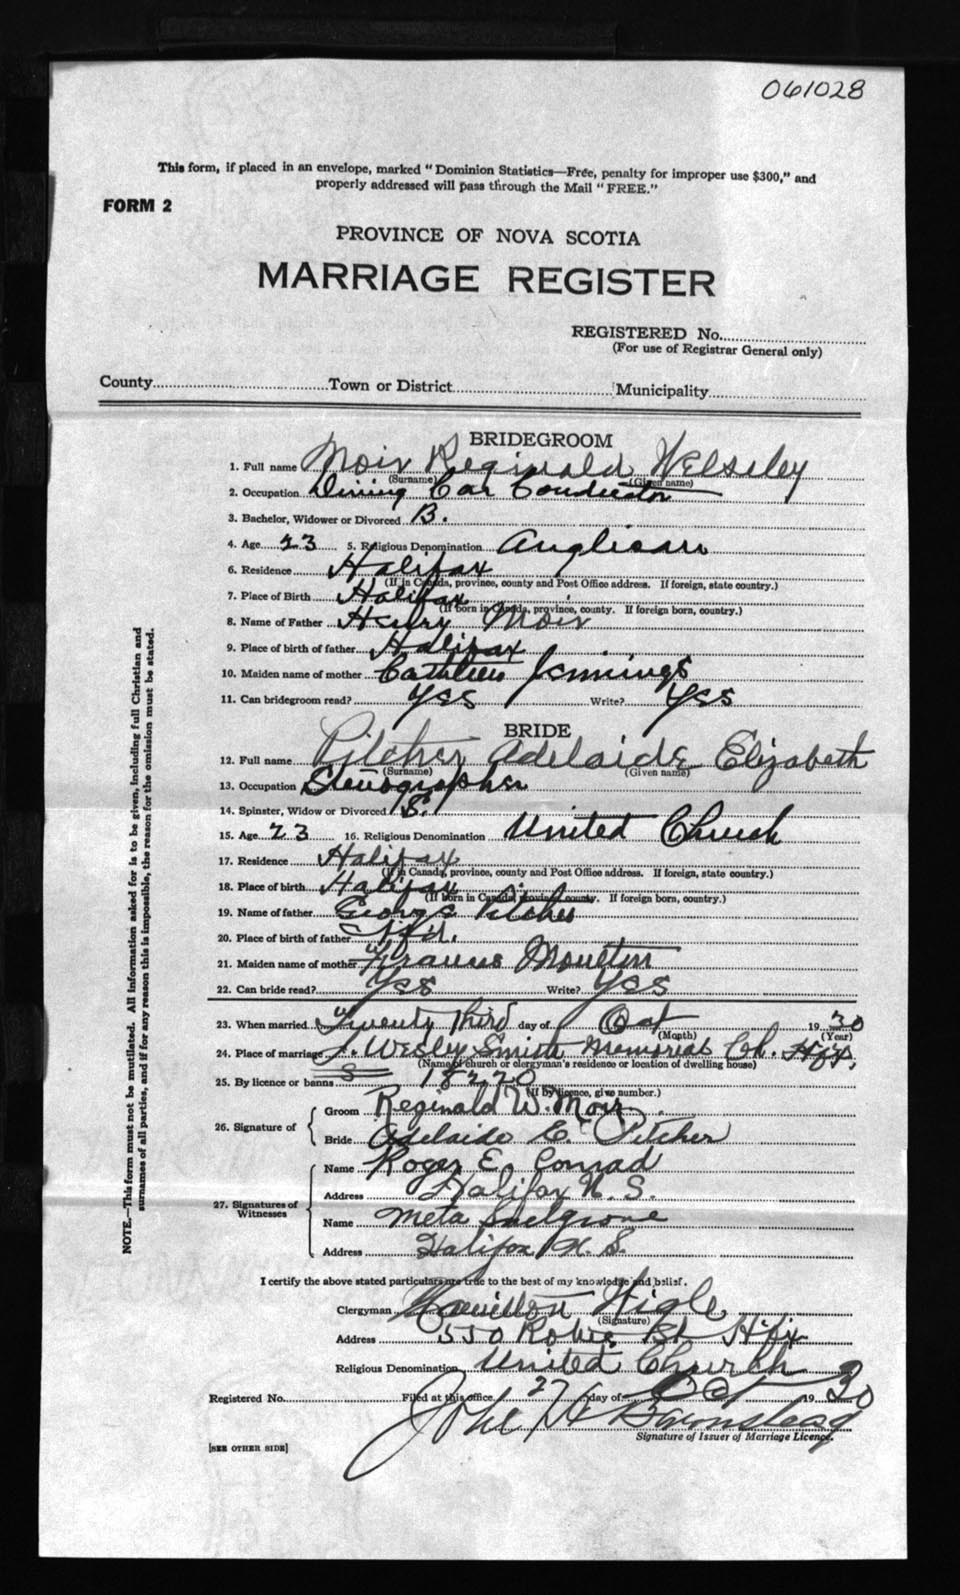 061028
This form, if placed in an envelope, marked "Dominion Statistics—Free, penalty for improper use $300," and
properly addressed will pass through the Mail "FREE."
FORM 2
PROVINCE OF NOVA SCOTIA
MARRIAGE REGISTER
REGISTERED No.
(For use of Registrar General only)
County Town or District Municipality
NOTE.—This form must not be mutilated. All information asked for is to be given, including full Christian and
surnames of all parties, and if for any reason this is impossible, the reason for the omission must be stated.
BRIDEGROOM
1. Full name Moir Reginald Welseley
(Surname) (Given name)
2. Occupation Dining Car Conductor
3. Bachelor, Widower or Divorced B.
4. Age 23 5. Religious Denomination Anglican
6. Residence Halifax
(If in Canada, province, county and Post Office address. If foreign, state country.)
7. Place of Birth Halifax
(If born in Canada, province, county. If foreign born, country.)
8. Name of Father Henry Moir
9. Place of birth of father Halifax
10. Maiden name of mother Cathleen Jennings
11. Can bridegroom read? Yes Write? Yes
BRIDE
12. Full name Pitcher Adelaide Elizabeth
(Surname) (Given name)
13. Occupation Stenographer
14. Spinster, Widow or Divorced S.
15. Age 23 16. Religious Denomination United Church
17. Residence Halifax
(If in Canada, province, county and Post Office address. If foreign, state country.)
18. Place of birth Halifax
(If born in Canada, province, county. If foreign born, country.)
19. Name of father George Pitcher
20. Place of birth of father Nfd.
21. Maiden name of mother Frances Moulton
22. Can bride read? Yes Write? Yes
23. When married Twenty third day of Oct 1930
(Month) (Year)
24. Place of marriage J. Wesley Smith Memorial Ch. Hfx.
(Name of church or clergyman's residence or location of dwelling house)
25. By licence or banns 18220
(If by licence, give number.)
26. Signature of Groom Reginald W. Moir
Bride Adelaide E. Pitcher
27. Signatures of Witnesses Name Roger E. Conrad
Address Halifax N. S.
Name Meta Snelgrove
Address Halifax N. S.
I certify the above stated particulars are true to the best of my knowledge and belief.
Clergyman Hamilton Wigle
(Signature)
Address 550 Robie St Hfx
Religious Denomination United Church
Registered No. Filed at this office 27 day of Oct 1930
John H Barnstead
Signature of Issuer of Marriage Licence.
[SEE OTHER SIDE]